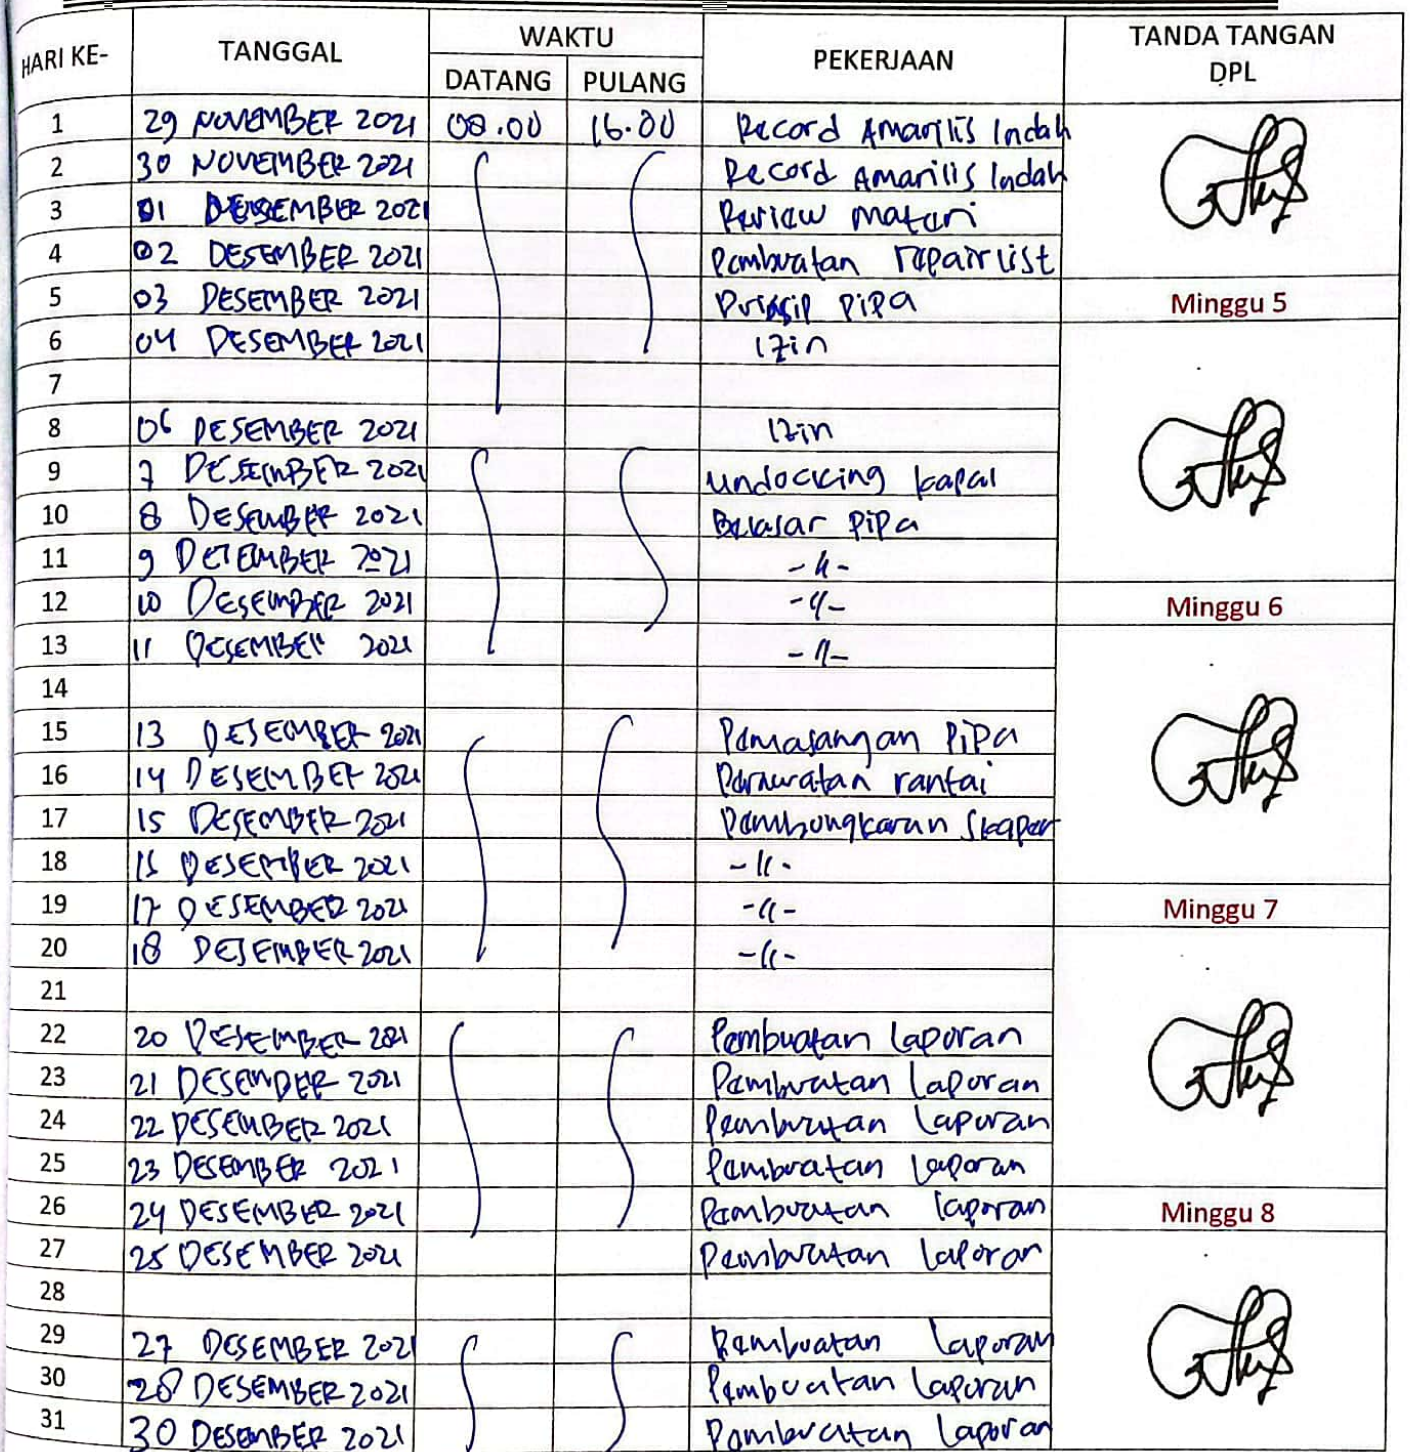 HARI KE- TANGGAL WAKTU PEKERJAAN TANDA TANGAN DPL
DATANG PULANG
1 29 NOVEMBER 2021 08.00 16.00 Record Amarilis Indah
2 30 NOVEMBER 2021 Record Amarilis Indah
3 01 DESEMBER 2021 Review materi
4 02 DESEMBER 2021 Pembuatan repair list
5 03 DESEMBER 2021 Prinsip PiPa Minggu 5
6 04 DESEMBER 2021 Izin
7
8 06 DESEMBER 2021 Izin
9 7 DESEMBER 2021 undocking kapal
10 8 DESEMBER 2021 PiPa
11 9 DESEMBER 2021 -11-
12 10 DESEMBER 2021 -11- Minggu 6
13 11 DESEMBER 2021 -11-
14
15 13 DESEMBER 2021 Pemasangan PiPa
16 14 DESEMBER 2021 Perawatan rantai
17 15 DESEMBER 2021 Pembongkaran
18 15 DESEMBER 2021 -11-
19 17 DESEMBER 2021 -11- Minggu 7
20 18 DESEMBER 2021 -11-
21
22 20 DESEMBER 2021 Pembuatan laporan
23 21 DESEMBER 2021 Pembuatan laporan
24 22 DESEMBER 2021 Pembuatan laporan
25 23 DESEMBER 2021 Pembuatan laporan
26 24 DESEMBER 2021 Pembuatan laporan Minggu 8
27 25 DESEMBER 2021 Pembuatan laporan
28
29 27 DESEMBER 2021 Pembuatan laporan
30 28 DESEMBER 2021 Pembuatan laporan
31 30 DESEMBER 2021 Pembuatan laporan